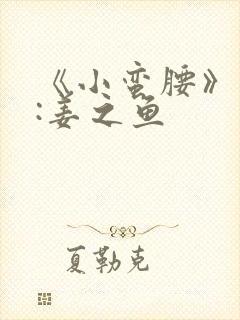 《小蛮腰》
:姜之鱼
夏勒克